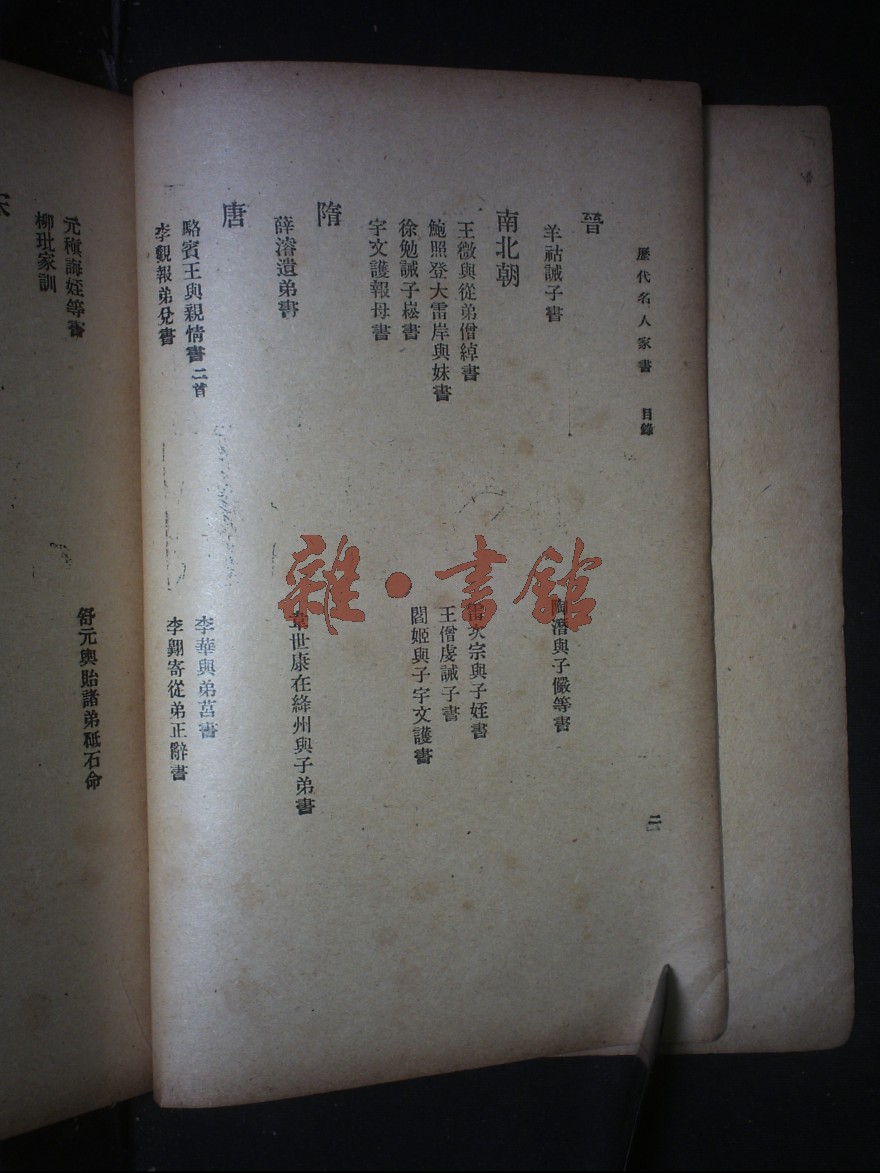 歷代名人家書 目錄
二
晉
羊祜誡子書
陶潛與子儼等書
南北朝
王微與從弟僧綽書
雷次宗與子姪書
鮑照登大雷岸與妹書
王僧虔誡子書
徐勉誡子崧書
閻姬與子宇文護書
宇文護報母書
隋
薛濬遺弟書
韋世康在絳州與子弟書
唐
駱賓王與親情書二首
李華與弟莒書
李觀報弟兌書
李翺寄從弟正辭書
元稹誨姪等書
舒元輿貽諸弟砥石命
柳玭家訓
雜·書館